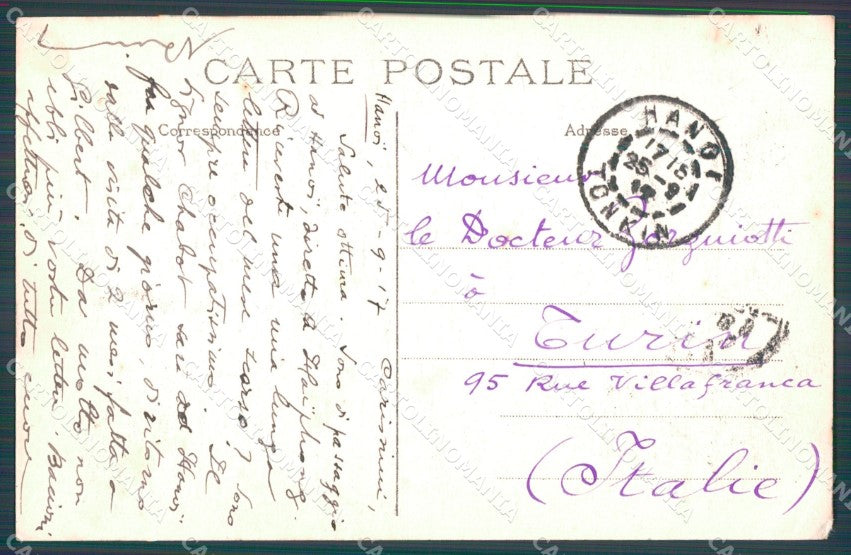 CARTE POSTALE
Correspondance
Adresse
Hanoi, 25-9-17 Carissimi,
Salute ottima. Sono di passaggio
ad Hanoi, diretto a Haïphong.
Riceveste una mia lunga
lettera del mese scorso? Sono
sempre occupatissimo. Il
Signor Chabot sarà ad Hanoi
fra qualche giorno, di ritorno
dalla visita di 2 mesi fatta a
Gilbert. Da molto non
ebbi più vostre lettere. Bacioni
affettuosi di tutto cuore
HANOI
17 15
25 - 9
TONKIN
Monsieur
le Docteur
à
Turin
95 Rue Villafranca
(Italie)
CARTOLINOMANIA